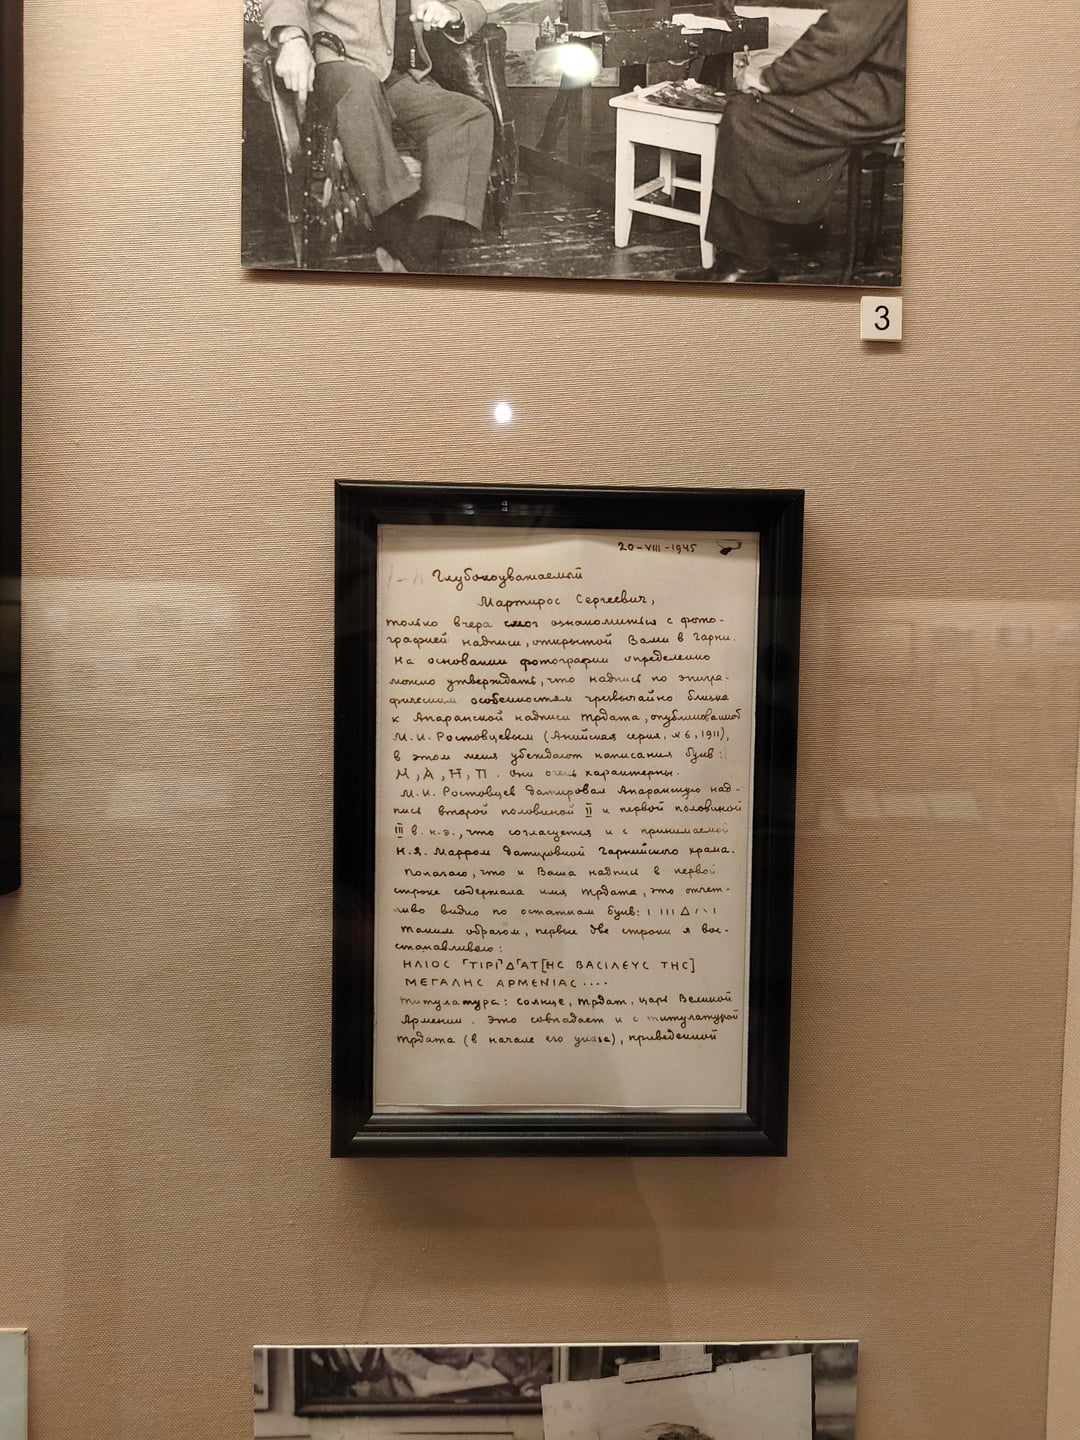 3
20-VIII-1945
Глубокоуважаемый
Мартирос Сергеевич,
только вчера смог ознакомиться с фото-
графией надписи, открытой Вами в Гарни.
На основании фотографии определенно
можно утверждать, что надпись по эпигра-
фическим особенностям чрезвычайно близка
к Апаранской надписи Трдата, опубликованной
М.И. Ростовцевым (Анийская серия, №6, 1911),
в этом меня убеждают написания букв:
Μ, Α, Η, Π. Они очень характерны.
М.И. Ростовцев датировал Апаранскую над-
пись второй половиной II и первой половиной
III в. н.э., что согласуется и с принимаемой
Н.Я. Марром датировкой Гарнийского храма.
Полагаю, что и Ваша надпись в первой
строке содержала имя Трдата, это отчет-
ливо видно по остаткам букв:
Таким образом, первые две строки я вос-
станавливаю:
ΗΛΙΟC ⸢ΤΙΡΙ⸣Δ⸢ΑΤ[ΗC ΒΑCΙΛΕΥC ΤΗC]
ΜΕΓΑΛΗC ΑΡΜΕΝΙΑC....
титулатура: солнце, Трдат, царь Великой
Армении. Это совпадает и с титулатурой
Трдата (в начале его указа), приведенной